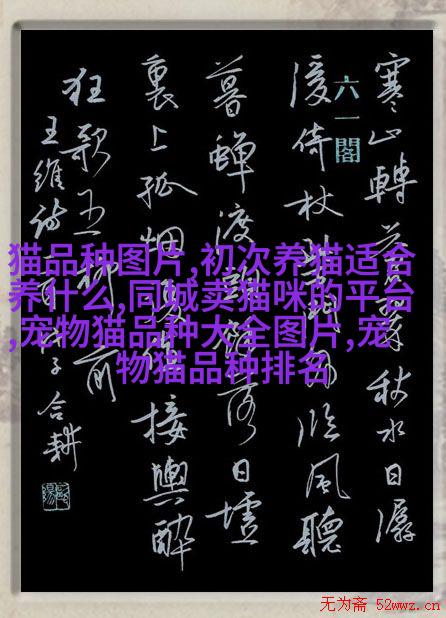 寒山轉蒼翠秋水日潺
六一閣
湲倚杖柴門外临風聽
暮蟬渡頭餘落日墟
裏上孤烟復值接輿醉
狂歌五柳前
王維诗一首子合耕
猫品种图片,初次养猫适合
养什么,同城卖猫咪的平台
,宠物猫品种大全图片,宠
物猫品种排名
无为斋 52wwz.cn